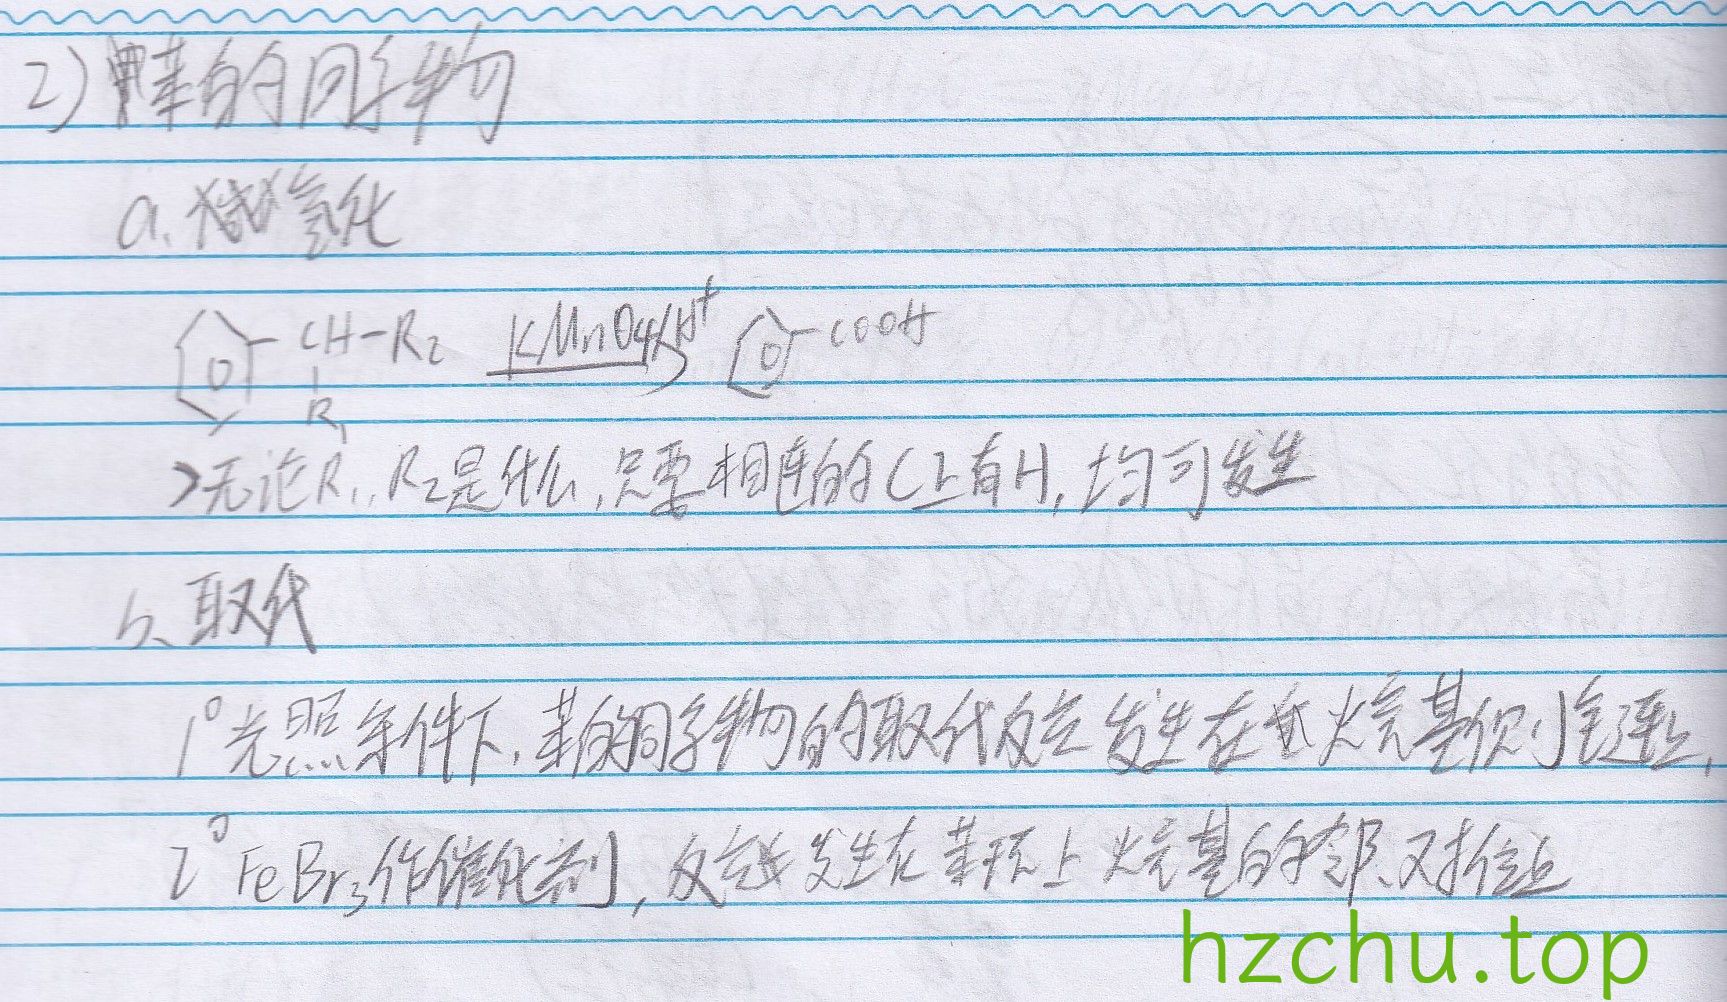 2) 苯的同系物
a. 氧化
CH-R₂ KMnO₄/H⁺ COOH
R₁
>无论R₁、R₂是什么,只要相连的C上有H,均可发生
b、取代
1° 光照条件下,苯的同系物的取代反应发生在烷基侧链上,
2° FeBr₃作催化剂,反应发生在苯环上烷基的邻、对位上
hzchu.top